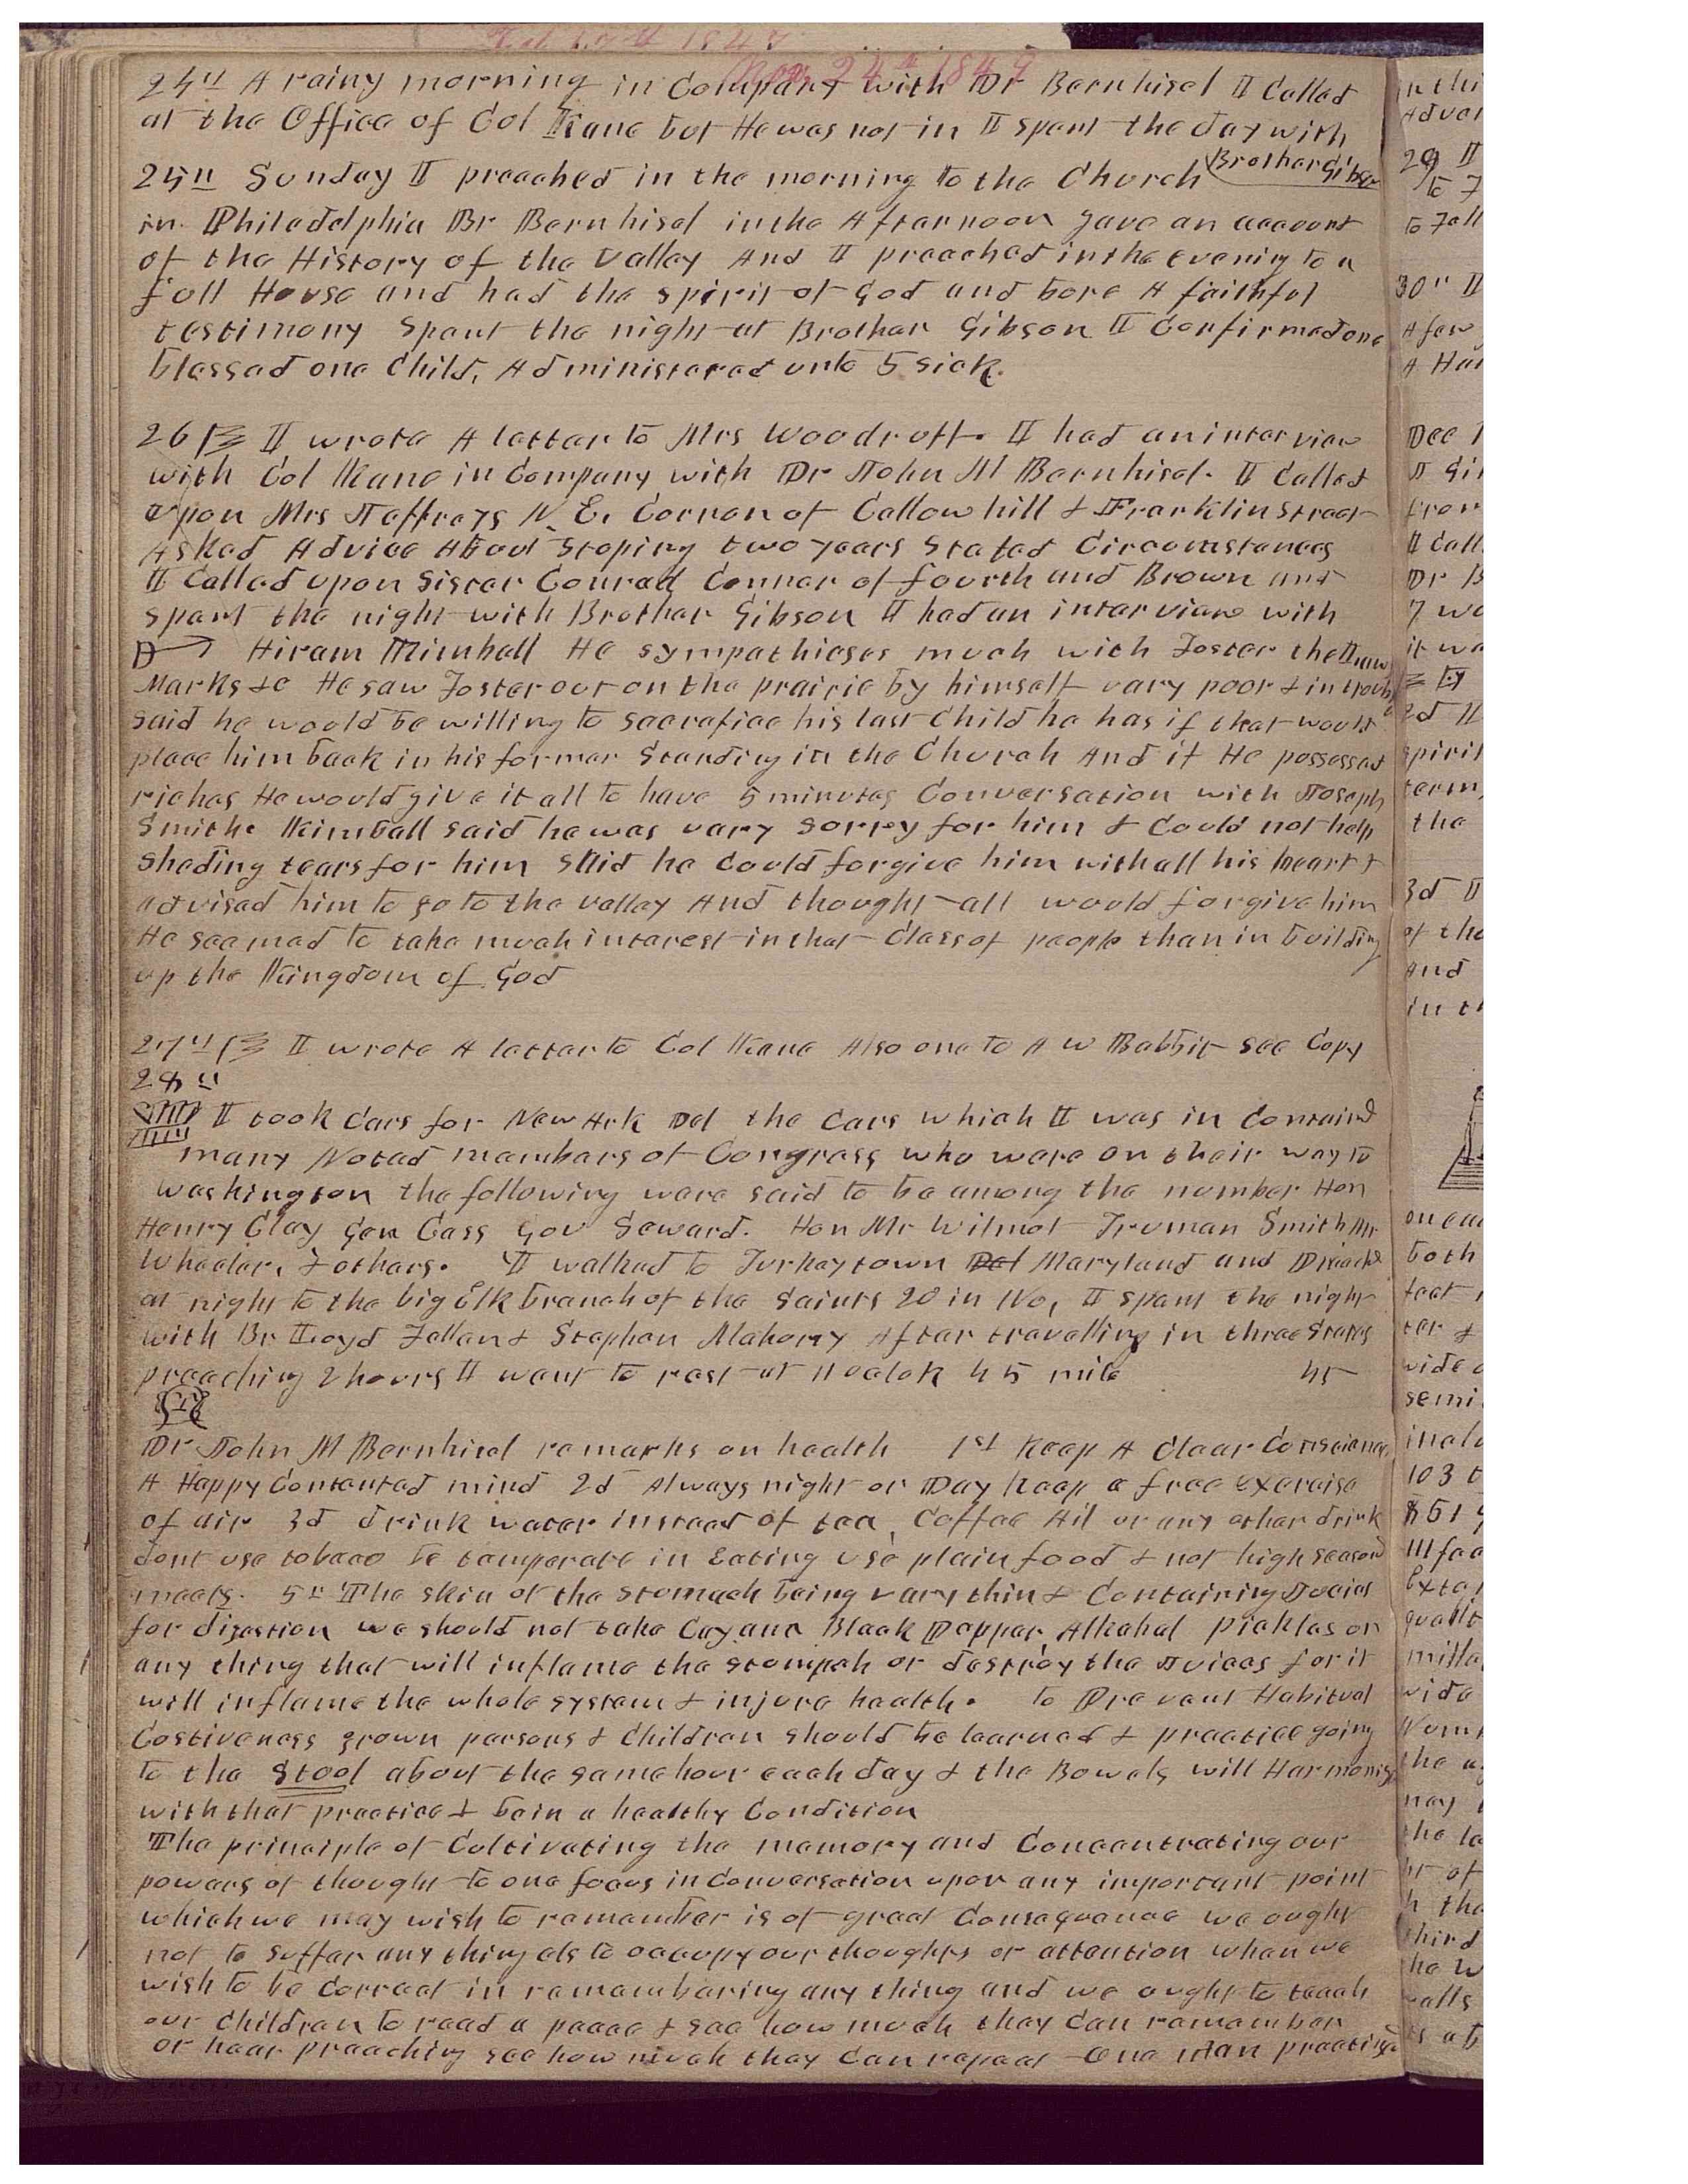 Nov 24th 1849
24th A rainy morning in Company with Dr Bernhisel I Called
at the Office of Col Kane but He was not in I spent the day with
Brother Gibson
25th Sunday I preached in the morning to the Church
in Philadelphia Br Bernhisel in the Afternoon gave an account
of the History of the valley And I preached in the evenig to a
full House and had the spirit of God and bore A faithful
testimony Spent the night at Brother Gibson I Confirmed one
blessed one Child, Administered unto 5 sick.
26 I wrote A letter to Mrs Woodruff. I had an interview
with Col Kane in Company with Dr John M Bernhisel. I Called
upon Mrs Jeffreys N. E. Corner of Callowhill & Franklin Street
Asked Advice About Stoping two years Stated Circumstances
I Called upon Sister Conrad Connor of fourth and Brown and
spent the night with Brother Gibson I had an interview with
Hiram Kimball He sympathises much with Foster the Laws
Marks &c He saw Foster out on the prairie by himself vary poor & in troub
said he would be willing to sacrafice his last Child he has if that would
place him back in his former Standing in the Church And if He possessed
riches He would give it all to have 5 minutes Conversation with Joseph
Smith. Kimball said he was vary sorry for him & Could not help
sheding tears for him Said he Could forgive him with all his heart &
advised him to go to the valley And thought all would forgive him
He seemed to take much interest in that Class of people than in building
up the Kingdom of God
27th I wrote A letter to Col Kane Also one to A W Babbit see Copy
28th
I took Cars for New Ark Del the Cars which I was in Containd
many Noted members of Congress who were on their way to
Washington the following were said to be among the number Hon
Henry Clay Gen Cass Gov Seward. Hon Mr Wilmot Truman Smith Mr
Wheeler, & others. I walked to Turkeytown Del Maryland and Preachd
at night to the big Elk branch of the Saints 20 in No, I spent the night
with Br Loyd Fellan & Stephen Mahony After travelling in three States
preaching 2 hours I went to rest at 11 oclok 45 mile 45
Dr John M Bernhisel remarks on health 1st Keep A Clear Consciance
A Happy Contented mind 2d Always night or Day keep a free exercise
of air 3d drink water instead of tea, Coffee Ail or any other drink
dont use tobaco be temperate in Eating use plain food & not high seasond
meats. 5th The skin of the stomach being vary thin & Containing Juices
for digestion we should not take Cayann Black Pepper, Alkahal pickles or
any thing that will inflame the stomach or destroy the Juices for it
will inflame the whole system & injure health. To Prevent Habitual
Costiveness grown persons & Children should be learned & practice going
to the Stool about the same hour each day & the Bowels will Harmonise
with that practice & be in a healthy Condition
The principle of Cultivating the memory and Concentrating our
powers of thought to one focus in Conversation upon any important point
which we may wish to remember is of great Consequence we ought
not to suffer any thing els to occupy our thoughts or attention when we
wish to be Correct in remembering any thing and we ought to teach
our Children to read a peace & see how much they Can remember
or hear preaching see how much they Can repeat One Man practised